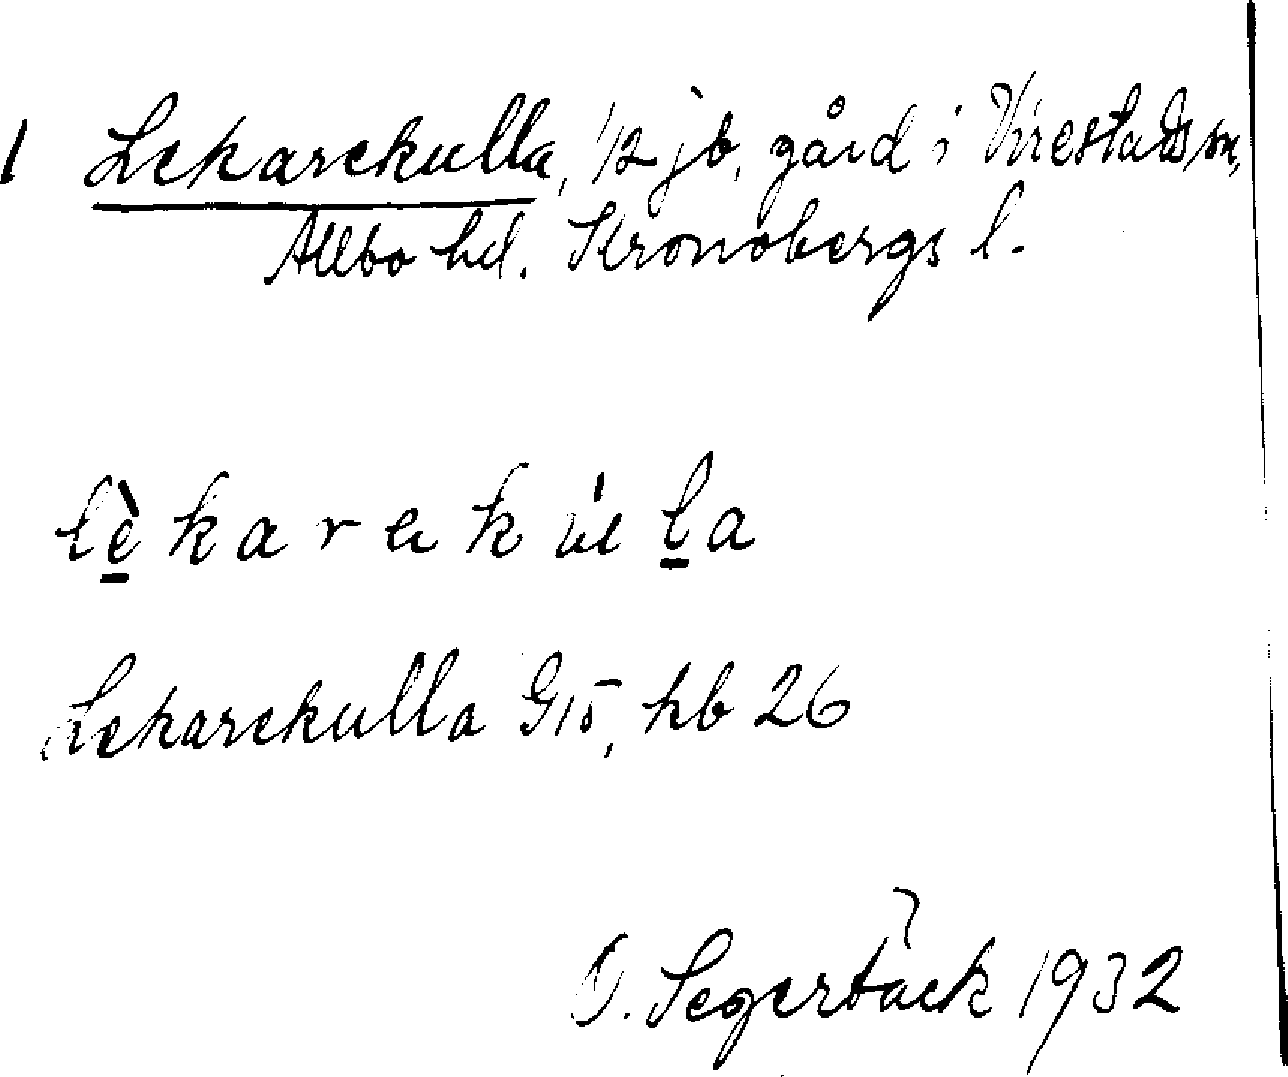 1 Lekarekulla, 1/2 jb, gård i Virestads sn,
Allbo hd. Kronobergs l.
lèkarekúla
Lekarekulla G15, hb 26
O. Segerbäck 1932